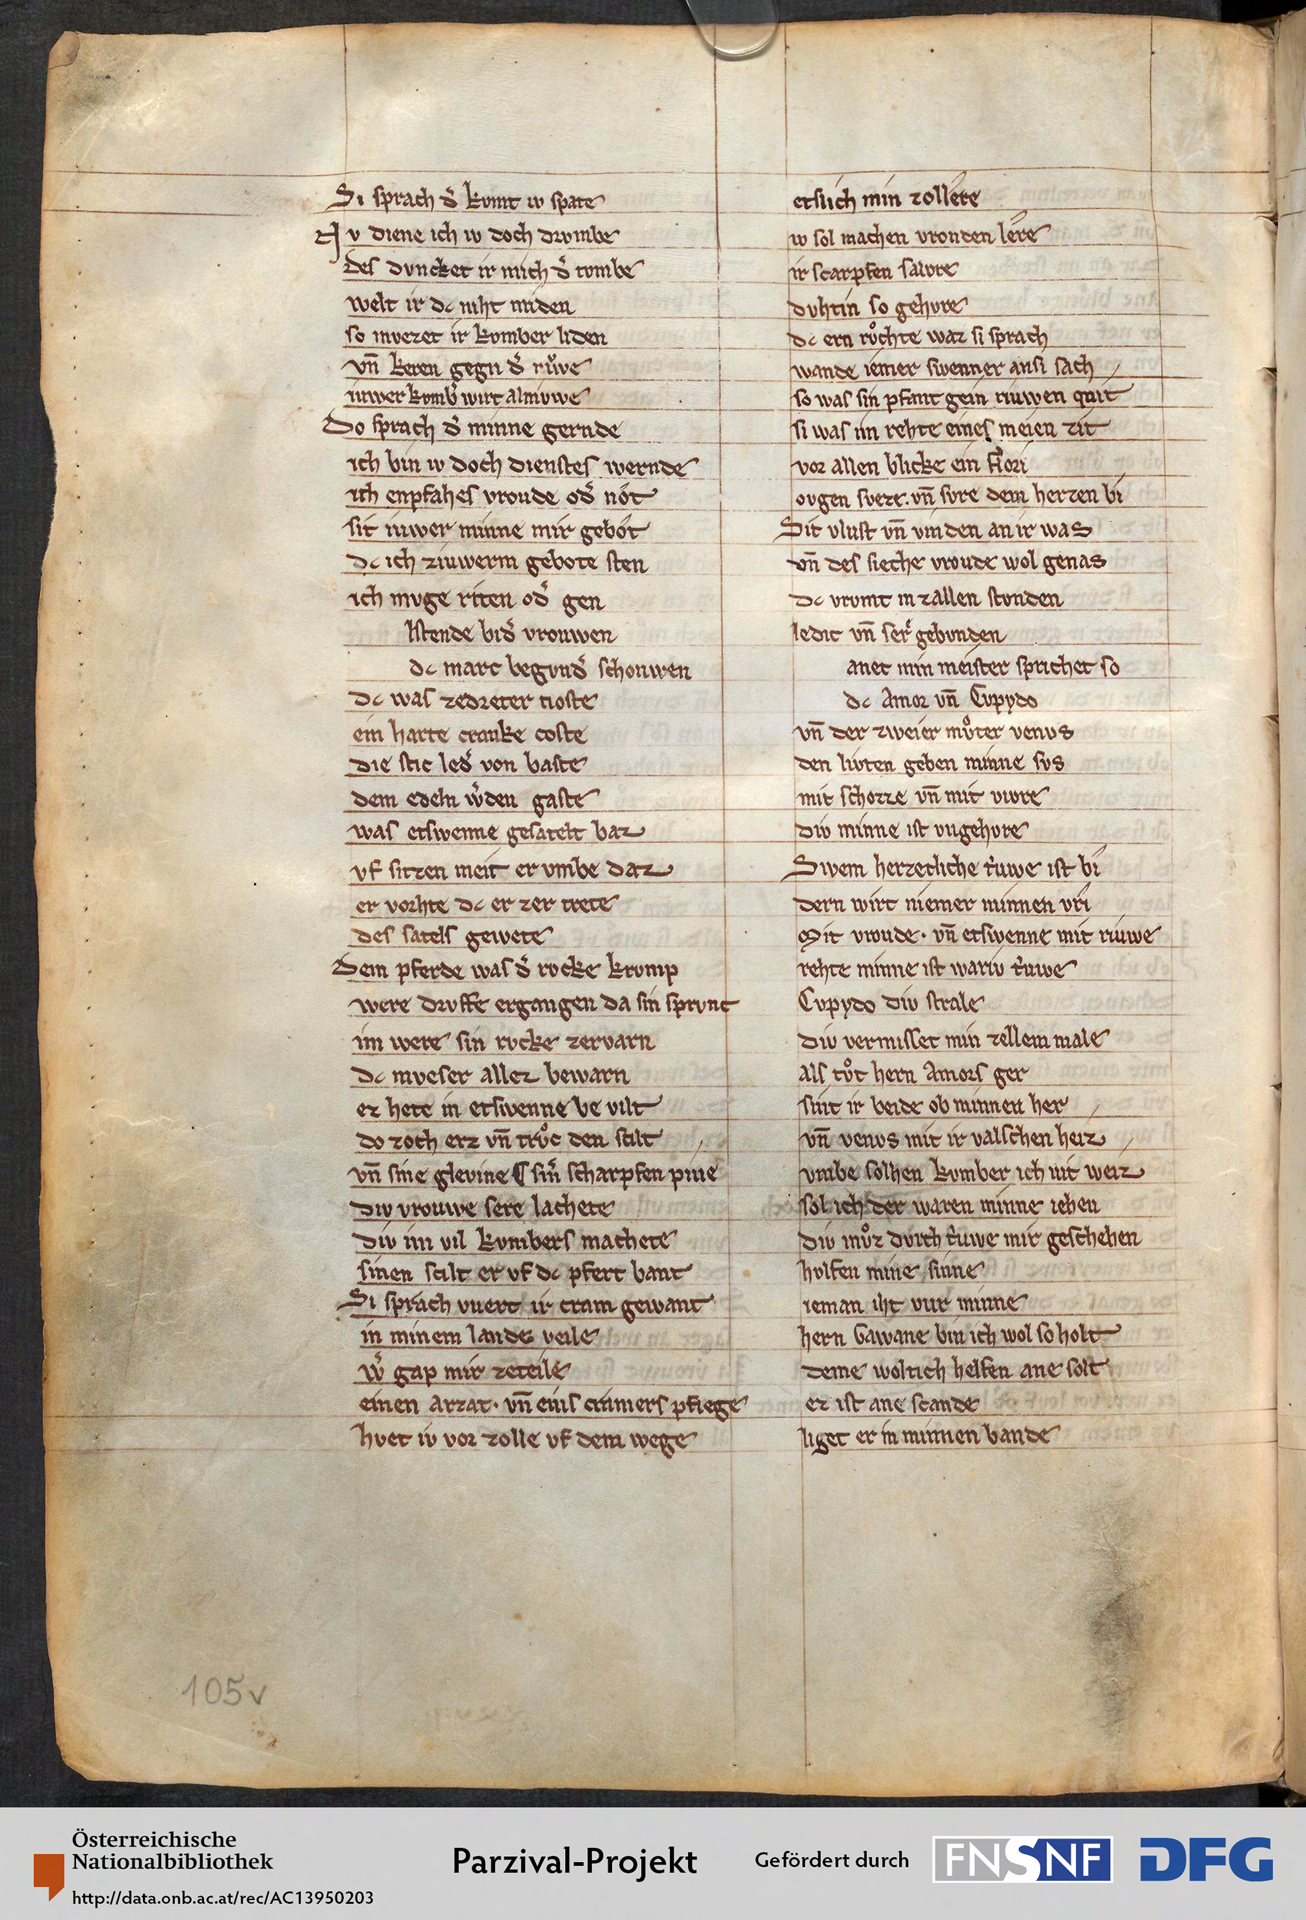 Si sprach d͛ kvmt iv spate
Nv diene ich iv doch drvmbe
des dvncket ir mich d͛ tvmbe
welt ir dc niht miden
so mvezet ir kvmber liden
vn̄ keren gegn d͛ rv̊we
iuwer kvmb͛ wirt al nivwe
Do sprach d͛ minne gernde
ich bin iv doch dienstes wernde
ich enpfahes vroude od͛ not
sit iuwer minne mir gebot
dc ich ziuwerm gebote sten
ich mvge riten od͛ gen
Istende bid͛ vrouwen
dc marc begvnd͛ schouwen
dc was zedreter tioste
ein harte cranke coste
die stic led͛ von baste
dem edeln w͛den gaste
was etswenne gesatelt baz
vf sitzen meit er vmbe daz
er vorhte dc er zer trete
des satels gewete
Dem pferde was d͛ rvcke krvmp
were drvffe ergangen da sin sprvnc
im were sin rvcke zervarn
dc mveser allez bewarn
ez hete in etswenne be vilt
do zoch erz vn̄ trv̊c den scilt
vn̄ sine glevine ¶ sin͛ scharpfen pine
div vrouwe sere lachete
div im vil kvmbers machete
sinen scilt er vf dc pfert bant
Si sprach vuert ir cram gewant
in minem lande veile
w͛ gap mir zeteile
einen arzat· vn̄ einis cramers pflege
hvet iv vor zolle vf dem wege
etslich min zollere
iv sol machen vrouden lere
ir scarpfen salvre
dvhtin so gehvre
dc ern rv̊chte waz si sprach
wande iemer swenner an si sach
so was sin pfant gein riuwen quit
si was im rehte eines meien zit
vor allen blicke ein flori
ovgen sveze· vn̄ svre dem herzen bi
Sit vlust vn̄ vinden an ir was
vn̄ des sieche vroude wol genas
dc vrvmt in zallen stvnden
ledic vn̄ ser͛ gebvnden
anet min meister sprichet so
dc Amor vn̄ Cvpydo
vn̄ der zweier mv̊ter venvs
den livten geben minne svs
mit schozze vn̄ mit vivre
div minne ist vngehvre
Swem herzetliche triuwe ist bi
dern wirt niemer minnen vri
Mit vroude· vn̄ etswenne mit riuwe
rehte minne ist wariv triuwe
Cvpydo div strale
div vermisset min zellem male
als tv̊t hern Amors ger
sint ir beide ob minnen her
vn̄ venvs mit ir valschen heiz
vmbe solhen kvmber ich nit weiz
sol ich der waren minne iehen
div mv̊z dvrch triuwe mir geschehen
hvlfen mine sinne
ieman iht vur minne
hern Gawane bin ich wol so holt
deme woltich helfen ane solt
er ist ane scande
liget er in minnen bande
105v
Österreichische
Nationalbibliothek
http://data.onb.ac.at/rec/AC13950203
Parzival-Projekt
Gefördert durch
FNSNF
DFG